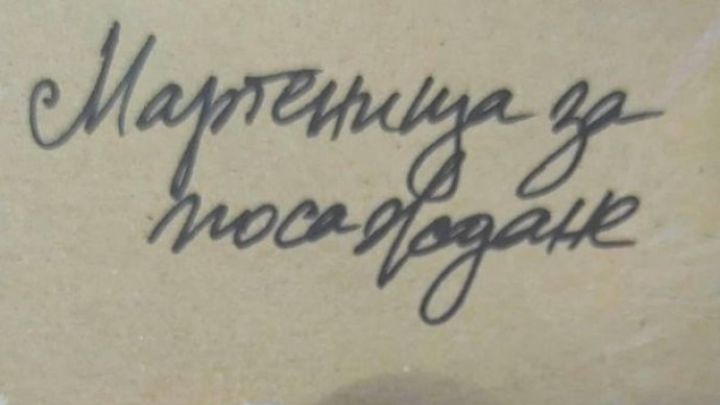 Мартеница за
посаждане